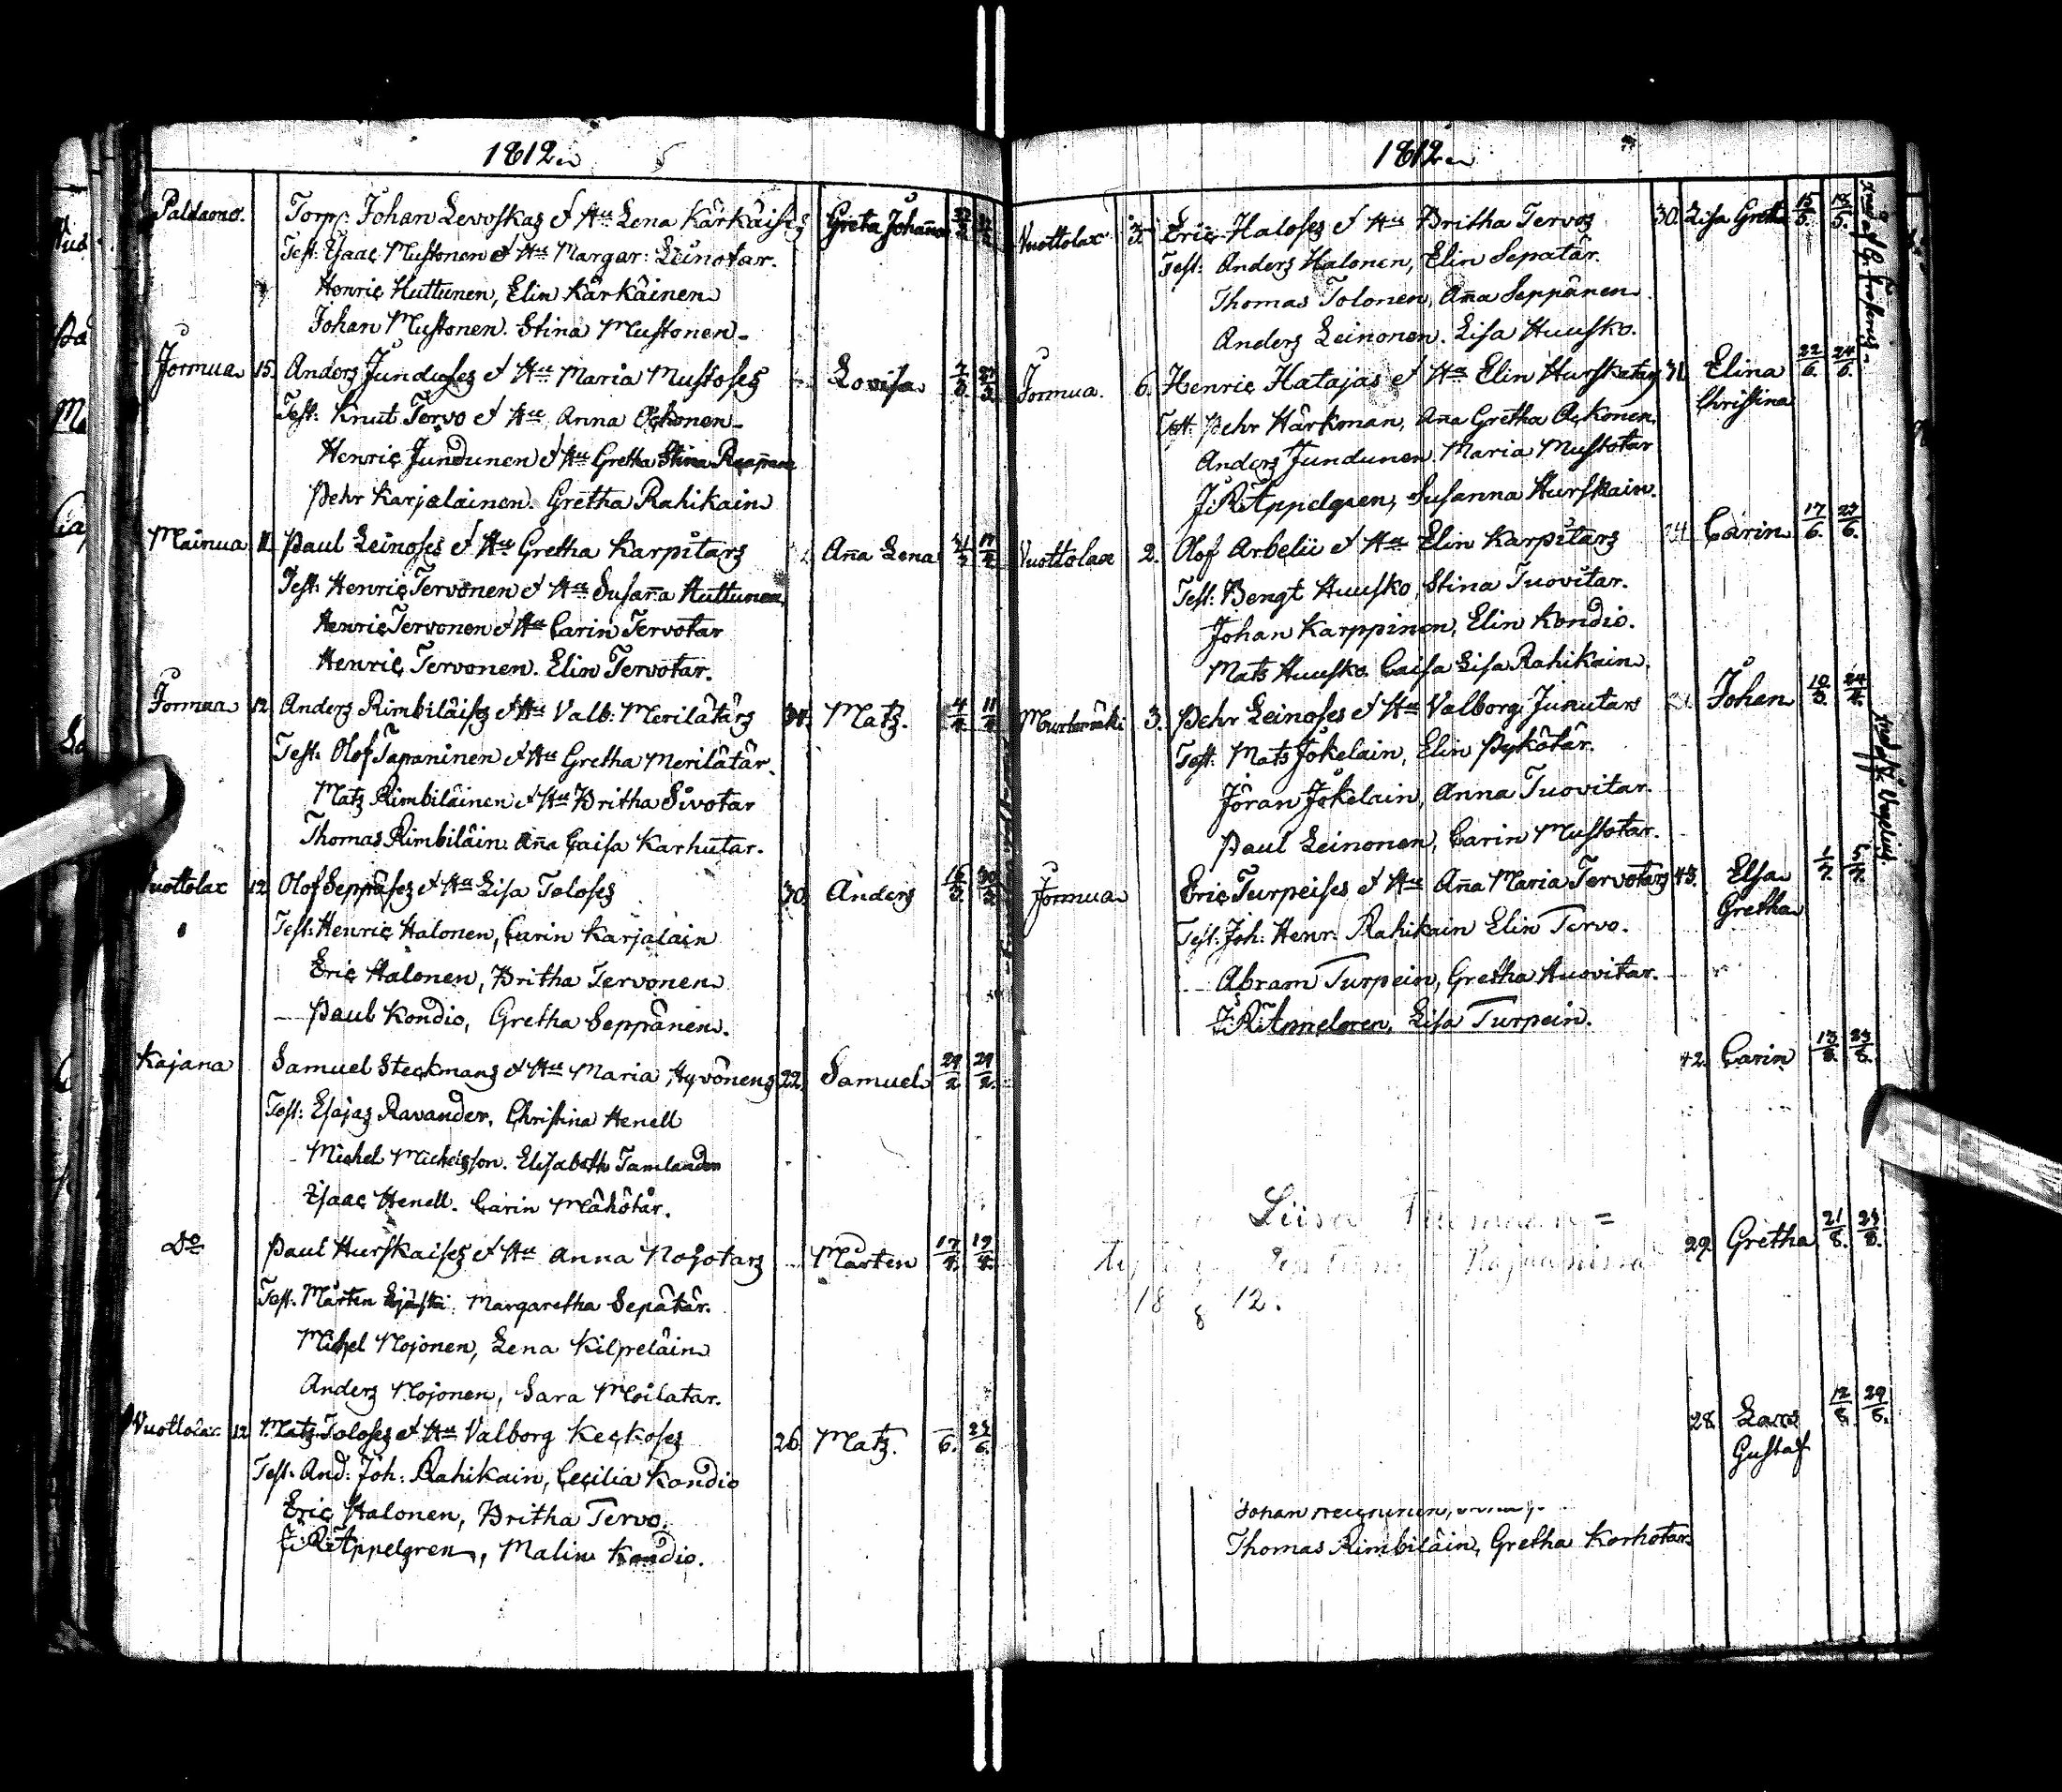 1812.
Paldamo. Torp: Johan Levoskas et Hu Lena Kärkäises Greta Johanna
Test: Isaac Mustonen et Hu Margar: Leinotar.
Henric Huttunen, Elin Kärkäinen
Johan Mustonen. Stina Mustonen
Jormua 15. Anders Junduses et Hu Maria Mustoses Lovisa
Test: Knut Tervo et Hu Anna Ockonen
Henric Jundunen et Hu Gretha Stina
Pehr Karjalainen. Gretha Rahikain
Mainua 11. Paul Leinoses et Hu Gretha Karpitars Aña Lena
Test: Henric Tervonen et Hu Susaña Huttunen
Henric Tervonen et Hu Carin Tervotar
Henric Tervonen. Elin Tervotar.
Jormua 12. Anders Rimbiläises et Hu Valb: Merilätärs 34. Matz. 4/4 11/4
Test: Olof Tapaninen et Hu Gretha Merilätär.
Matz Rimbiläinen et Hu Britha Sivotar
Thomas Rimbiläin Aña Caisa Karhutar.
Vuottolax 12. Olof Seppäses et Hu Lisa Toloses 30. Anders
Test: Henric Halonen, Carin Karjalain
Eric Halonen, Britha Tervonen
Paul Kondio, Gretha Seppänen.
Kajana Samuel Steckmans et Hu Maria Hyvönens 22. Samuel 29/2 29/2
Test: Esajas Ravander, Christina Henell
Michel Michelsson. Elisabeth Tamlander
Isaac Henell. Carin Mähötär.
Do Paul Hurskaises et Hu Anna Nojotars Mårten 17/4 19/4
Test. Mårten Margaretha Sepätär.
Michel Mojonen, Lena Kilpeläin
Anders Mojonen, Sara Moilatar.
Vuottolax 12 Matz Toloses et Hu Valborg Keckoses 26. Matz. 6.
Test. And: Joh: Rahikain, Cecilia Kondio
Eric Halonen, Britha Tervo.
J: R: Appelgren, Malin Kondio.
1812.
Vuottolax 3. Eric Haloses et Hu Britha Tervos 30. Lisa Greta 15/5. 18/5.
Test: Anders Halonen, Elin Sepatär.
Thomas Tolonen, Aña Seppänen
Anders Leinonen. Lisa Huusko.
Jormua. 6. Henric Hatajas et Hu Elin Hurskatars 31. Elina Christina 22/6. 24/6.
Test: Pehr Härkman, Aña Gretha Ackonen
Anders Jundunen. Maria Mustotar
J: R: Appelgren, Susanna Hurskain.
Vuottolax 2. Olof Arbelii et Hu Elin Karpitars Carin 17/6. 23/6.
Test: Bengt Huusko, Stina Tuovitar.
Johan Karppinen, Elin Kondio.
Mats Huusko. Caisa Lisa Rahikain.
3. Pehr Leinoses et Hu Valborg Junutars Johan
Test: Mats Jokelain, Elin Pykötär.
Jöran Jokelain, Anna Tuovitar.
Paul Leinonen, Carin Mustotar.
Jormua Eric Turpeises et Hu Aña Maria Tervotars 43. Elsa Gretha
Test: Joh: Henr: Rahikain Elin Tervo.
Abram Turpein, Gretha Huovitar.
J: R: Lisa Turpein.
42. Carin 13/8. 23/8.
29. Gretha 21/8. 23/8.
18 8 12.
28. Lars Gustaf
Johan
Thomas Rimbiläin, Gretha Korhotars